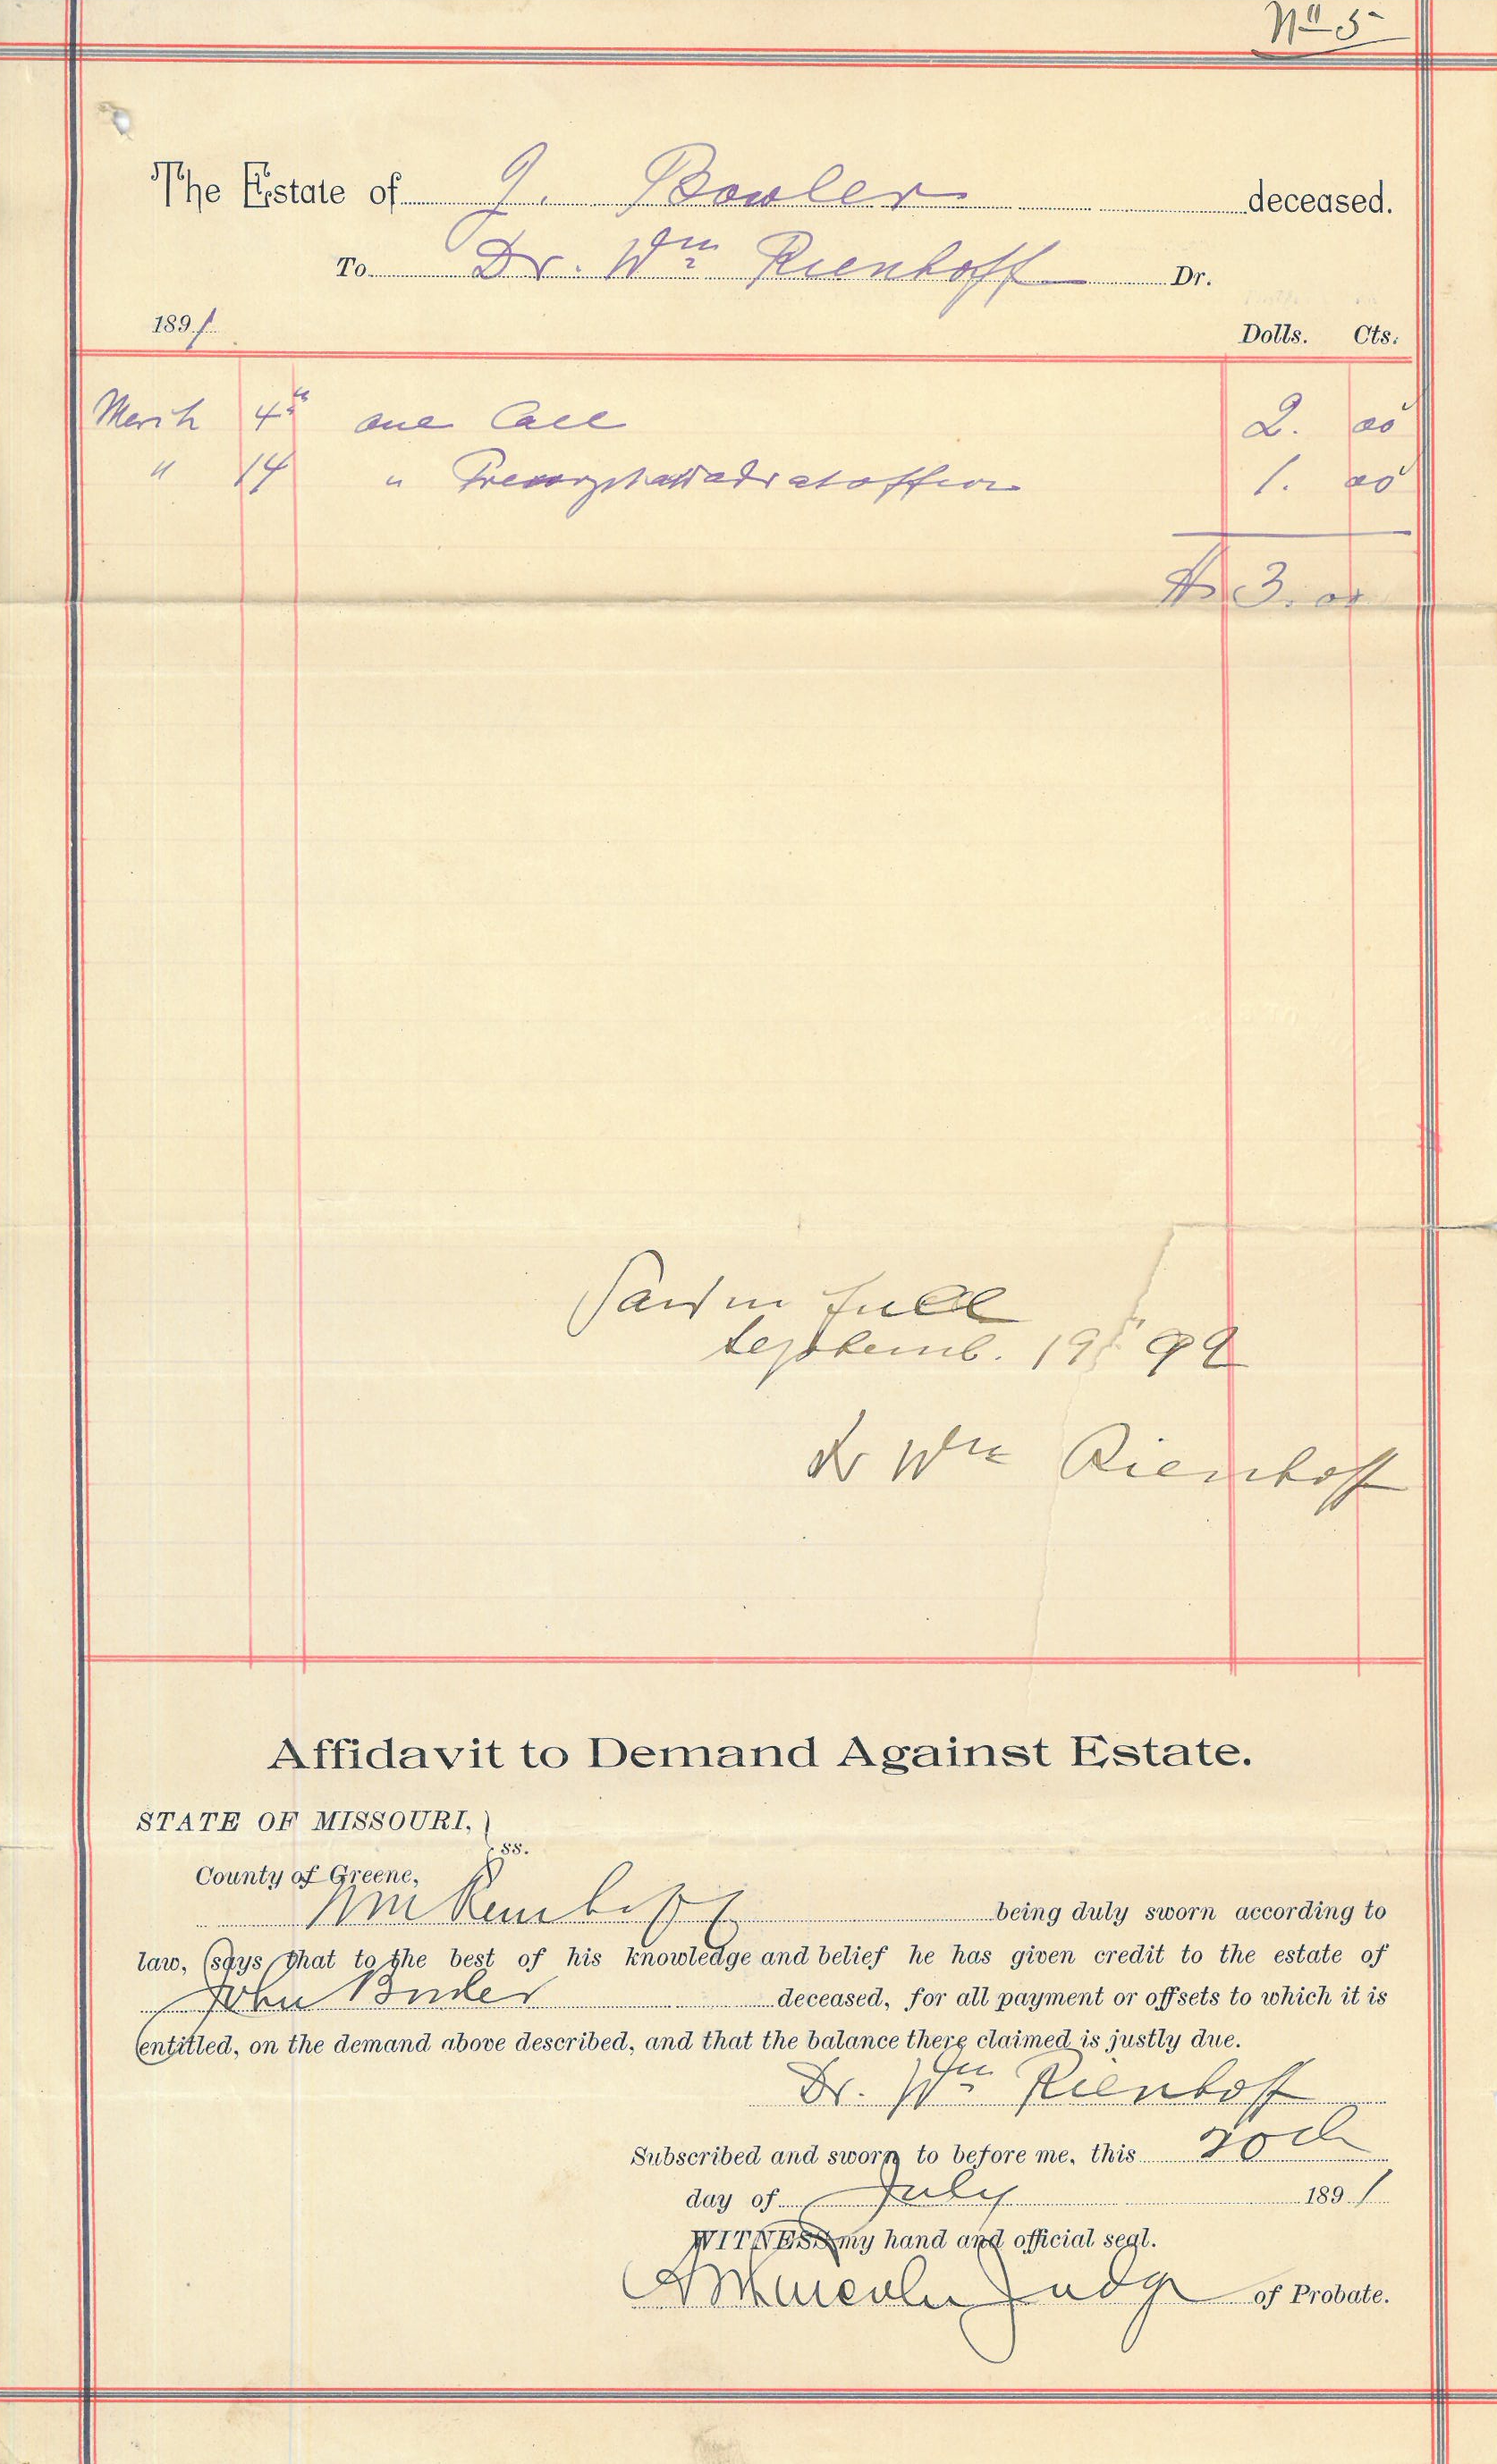 No 5
The Estate of J. Bowler deceased.
To Dr. Wm Rienhoff Dr.
1891 Dolls. Cts.
March 4th one Call 2. 00
" 14 " at office 1. 00
$ 3. 00
in full
Septemb. 19th 92
Dr Wm Rienhoff
Affidavit to Demand Against Estate.
STATE OF MISSOURI, }
ss.
County of Greene,
Wm Rienhoff being duly sworn according to
law, says that to the best of his knowledge and belief he has given credit to the estate of
John deceased, for all payment or offsets to which it is
entitled, on the demand above described, and that the balance there claimed is justly due.
Dr. Wm Rienhoff
Subscribed and sworn to before me, this
day of July 1891
WITNESS my hand and official seal.
Judge of Probate.